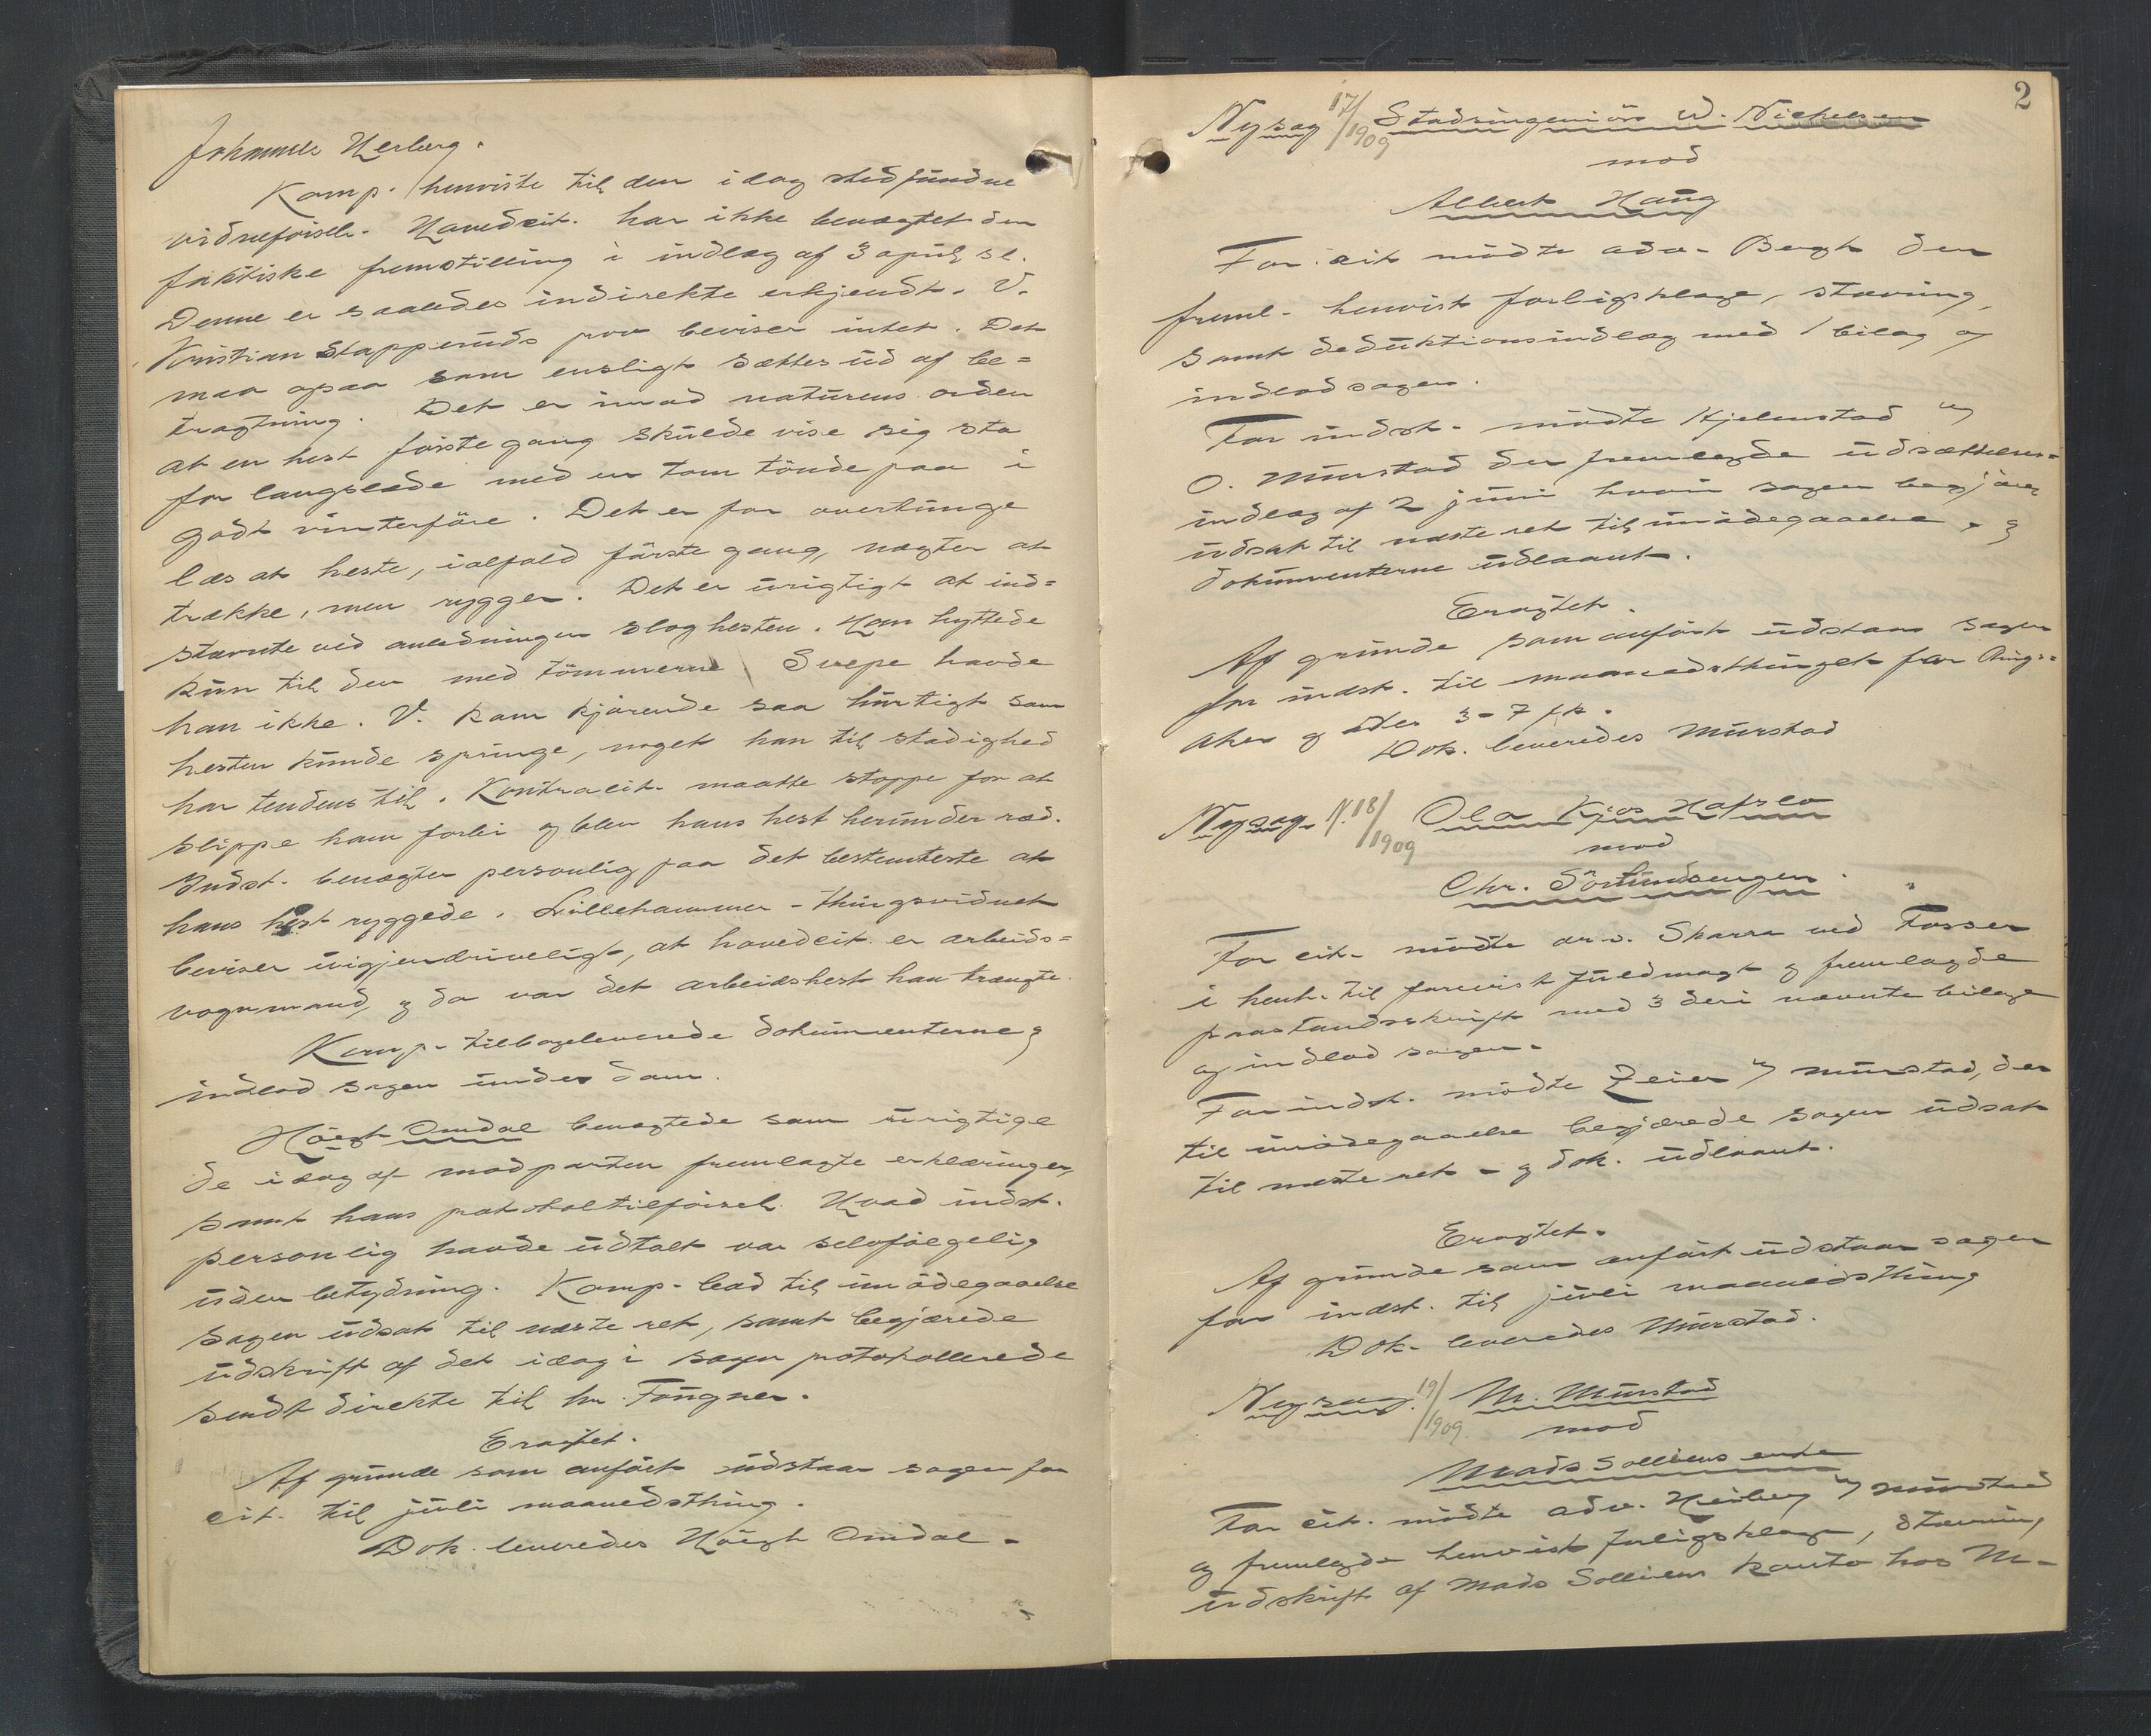 Johannes Herberg.
Komp. henviste til den idag stedfundne
vidneførsel. Hovedcit. har ikke benægtet den
faktiske fremstilling i indlæg af 3 april sl.
Denne er saaledes indirekte erkjendt. V.
Kristian Stapperuds prov beviser intet. Det
maa ogsaa som ensligt sættes ud af be=
tragtning. Det er imod naturens orden
at en hest første gang skulde vise sig sta
for langslæde med en tom tønde paa i
godt vinterføre. Det er for overtunge
læs at heste, ialfald første gang, nægter at
trække, men rygger. Det er urigtigt at ind=
stævnte ved anledningen slog hesten. Han hyttede
kun til den med tømmerne. Svepe havde
han ikke. V. kom kjørende saa hurtigt som
hesten kunde springe, noget han til stadighed
har tendens til. Kontracit. maatte stoppe for at
slippe ham forbi og blev hans hest herunder ræd.
Indst. benægter personlig paa det bestemteste at
hans hest ryggede. Lillehammer-thingsvidnet
beviser uigjendriveligt, at hovedcit. er arbeids=
vognmand, og da var det arbeidshest han trængte.
Komp. tilbageleverede dokumenterne og
indlod sagen under dom.
Høegh Omdal benægtede som urigtige
de idag af modparten fremlagte erklæringer,
samt hans protokoltilførsel. Hvad indst.
personlig havde udtalt var selvfølgelig
uden betydning. Komp. bad til imødegaaelse
sagen udsat til næste ret, samt begjærede
udskrift af det idag i sagen protokollerede
sendt direkte til hr. Fougner.
Eragtet.
Af grunde som anført udstaar sagen for
cit. til juli maanedsthing.
Dok. leveredes Høegh Omdal.
2
Ny sag 17/1909 Stadsingeniør W. Nickelsen
mod
Albert Haug
For cit. mødte adv. Bergh der
freml. henvist forligsklage, stævning,
samt deduktionsindlæg med 1 bilag og
indlod sagen.
For indst. mødte Hjelmstad v/
O. Murstad der fremlagde udsættelses=
indlæg af 2 juni hvori sagen begjæres
udsat til næste ret til imødegaaelse, og
dokumenterne udlaant.
Eragtet.
Af grunde som anført udstaar sagen
for indst. til maanedsthinget for Rings=
aker og den 3-7 fk.
Dok. leveredes Murstad
Ny sag N. 18/1909 Ola Kjos Hafslo
mod
Chr. Sörlundsengen.
For cit. mødte o.r.s. Skarra ved Fosser
i henh. til forevist fuldmagt og fremlagde
paastandsskrift med 3 deri nævnte bilage
og indlod sagen.
For indst. mødte Zeier v/ Murstad, der
til imødegaaelse begjærede sagen udsat
til næste ret - og dok. udlaant.
Eragtet.
Af grunde som anført udstaar sagen
for indst. til juli maanedsthing
Dok. leveredes Murstad.
Ny sag. 19/1909. M. Murstad
mod
Mads Solliens enke
For cit. mødte adv. Heiberg v/ Murstad
og fremlagde henvist forligsklage, stævning
udskrift af Mads Solliens konto hos M-